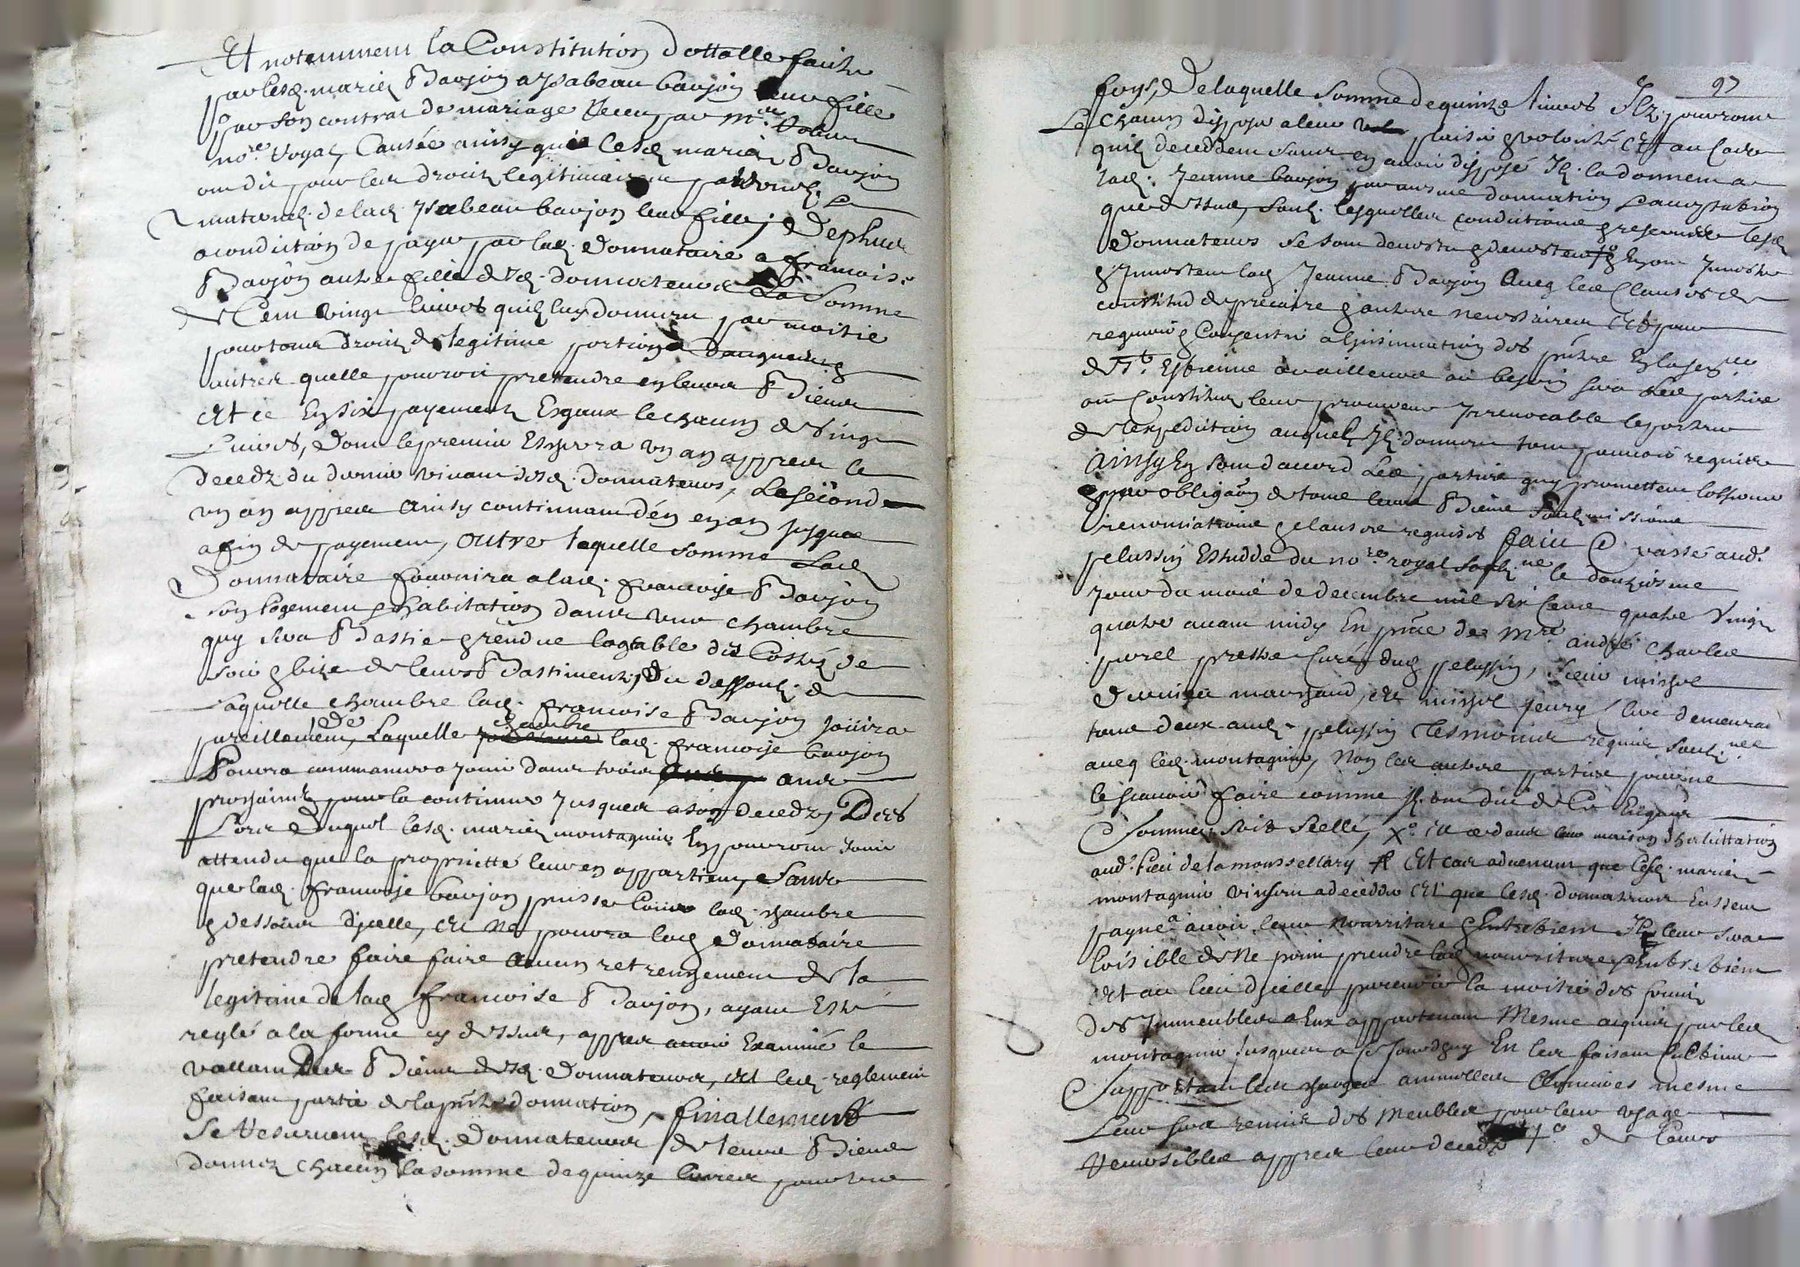 Et notemment la Constitution dottalle faicte
par lesd. mariez Baujon a ysabeau baujon leur fille
par son contrat de mariage receu par Mre
nore royal, Causée ainsy que lesd mariez Baujon
ont dit pour les droitz legitimaires paternelz &
maternelz de lad. ysabeau baujon leur fille, & de plus
a condiction de payer par lad. donnataire a francoise
Baujon autre fille desd. donnateurs La Somme
de Cent vingt livres quilz luy donnent par moitié
pour tous droitz de legitime portion &
autres quelle pourroit pretendre en leurs Biens
Et ce En six payements Esgaux le chacun de vingt
Livres, dont le premier Eschera un an appres le
decedz du dernier vivant desd. donnateurs, Le second
un an appres Ainsy continuant d'an en an jusques
a fin de payement, outre laquelle somme Lad
Donnataire fournira a lad. francoise Baujon
son logement & habitation dans une chambre
quy sera Bastie & rendue logeable du Costé de
soir & bize de leurs Bastiments, du dessoub de
Laquelle chambre lad. francoise Baujon jouira
pareillement, de Laquelle chambre lad. francoise baujon
Pourra commancer a jouir dans trois ans
prochains pour la continuer jusques a son decedz, Des
Lors duquel lesd. mariez montagnier En pourront jouir
attendu que la proprietté leur en appartient, Sans
que lad. francoise baujon puisse louer lad. chambre
& dessoub d'icelle, Et Ne pourra lad donnataire
pretendre faire faire aucun retrenchement de la
legitime de lad francoise Baujon, ayant Esté
reglé a la forme cy dessus, appres avoir Examiné le
vallant des Biens desd. donnateurs, Et led. reglement
faisant partie de la pnte donnation, finallement
Se reservent lesd. donnateurs de leurs Biens
donnez chacun la somme de quinze livres pour une
97
foys, De laquelle somme de quinze livres Ilz pourront
Le chacun disposer a leur plaisir & volonté Et au Cas
quilz decedent sans en avoir disposé Ilz la donnent a
lad. Jeanne baujon par mesme donnation & acceptation
que dessus, soub lesquelles conditions & reserves lesd
Donnateurs se sont demis & devestus & En ont Investu
& Investent lad Jeanne Baujon Avec les Clauses de
constitut de precaire & autres necessaires Et pour
requerir & Consentir a l'insinuation des pntes En la
de St Estienne ou ailleurs ou besoin sera Les parties
ont Constitué leur procureur Irrevocable le porteur
de l'expedition auquel Ilz donnent tout pouvoir requis
Ainsy En sont d'accord Les parties quy promettent l'observer
par obligaon de tous leurs Biens soubmissions
renonciations & clauses requises fait & passé aud.
pelussin Estudde du nore royal soubzne le douzieme
jour du mois de decembre mil six Cent quatre vingt
quatre avant midy En pnce de Mre andré charles
prestre Curé dud pelussin, sieur missel
marchand, Et missel fleury demeurant
tous deux aud. pelussin tesmoins requis soubznez
avec led. montagnier, Non les autres parties pour ne
le scavoir faire comme Ilz ont dit de Ce Enquis
& Sommez, Soit Scellé, Xo Et ce dans leur maison d'habitation
aud. lieu de la Et cas advenant que lesd. mariez
montagnier vinsent a deceder Et que lesd. donnateurs Eussent
payne a avoir leur nourriture & Entretient Il leur sera
loisible de Ne point prendre lad nourriture & Entretient
Et au lieu d'icelle prendre la moitié des fruitz
des Immeubles a Eux appartenant Mesme acquis par led
montagnier jusques a ce jourdhuy En les faisant cultiver
& Supportant les charges annuelles Comunes mesme
Leur sera remis des Meubles pour leur usage
reversibles appres leur decedz de leurs